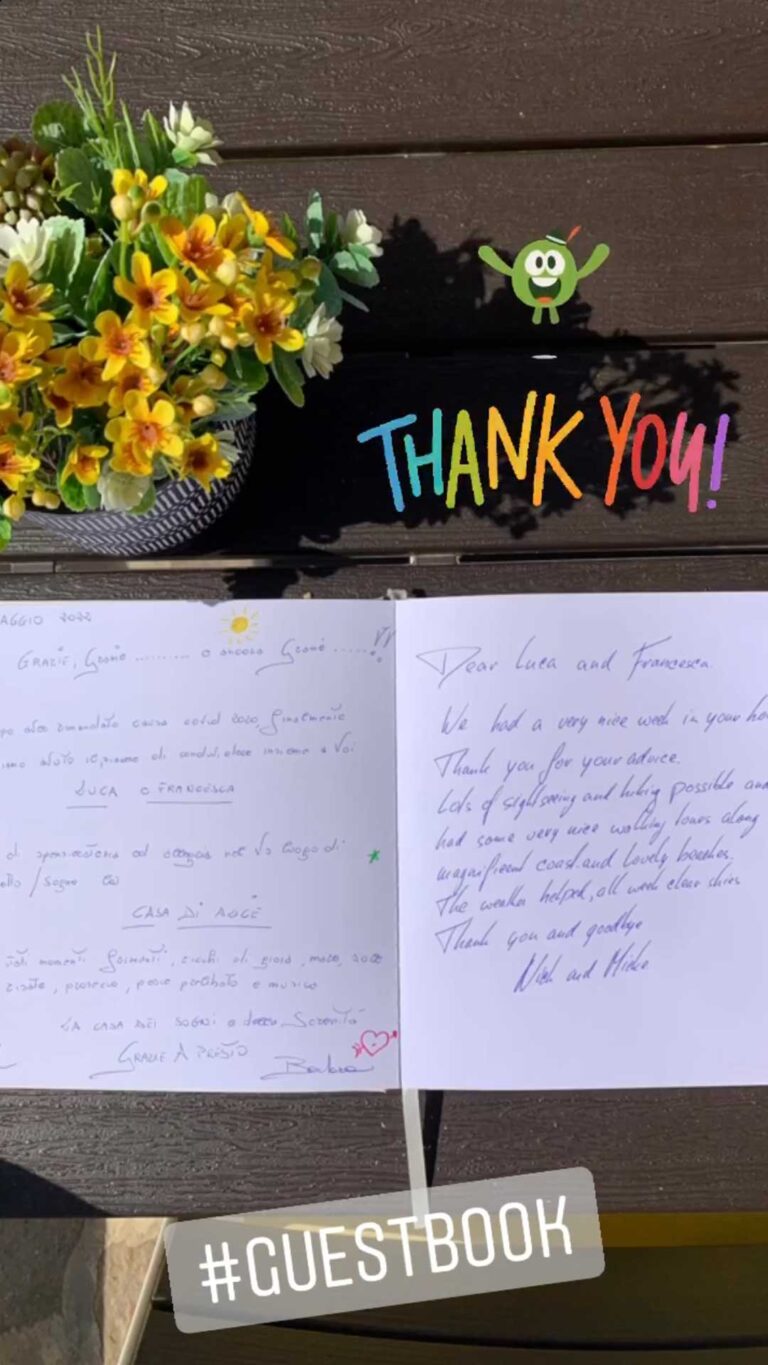 THANK YOU!
AGGIO 2022
GRAZIE, Grazie ......... e ancora Grazie .....!!
causa covid 2020, finalmente
di condividere insieme a Voi
LUCA e FRANCESCA
di spensieratezza ed allegria nel Vs luogo di
/ Sogno
CASA DI ALICE
momenti, di gioia, mare, sole
, prosecco, pesce prelibato e musica
LA CASA DEI SOGNI e della Serenità
GRAZIE A PRESTO
Barbara
Dear Luca and Francesca.
We had a very nice week in your ho
Thank you for your advice.
Lots of sightseeing and hiking possible and
had some very nice walking tours along
magnificent coast and lovely beaches.
The weather helped, all week clear skies
Thank you and goodbye
and
#GUESTBOOK